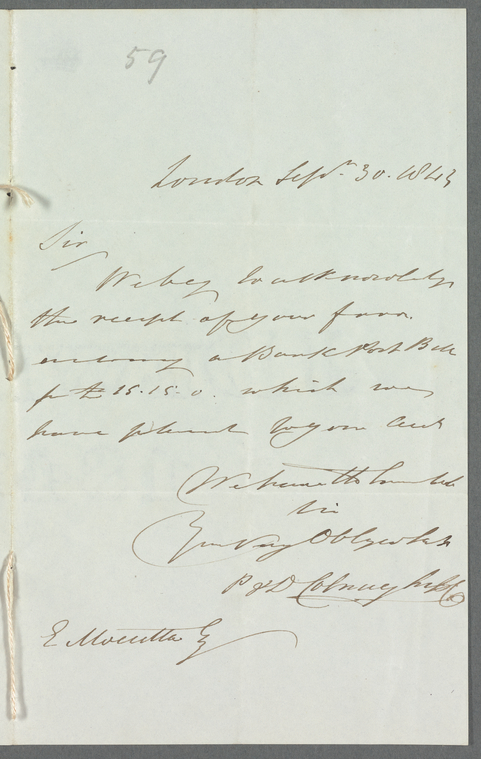 59
London Sepr 30. 1843
Sir
We beg to acknowledge
the receipt of your favor
enclosing a Bank Post Bill
for £ 15.15.0. which we
have placed to your Acct
We have the honor to be
Sir
Your very Obliged
P & D Colnaghi & Co
E Mocatta Esq